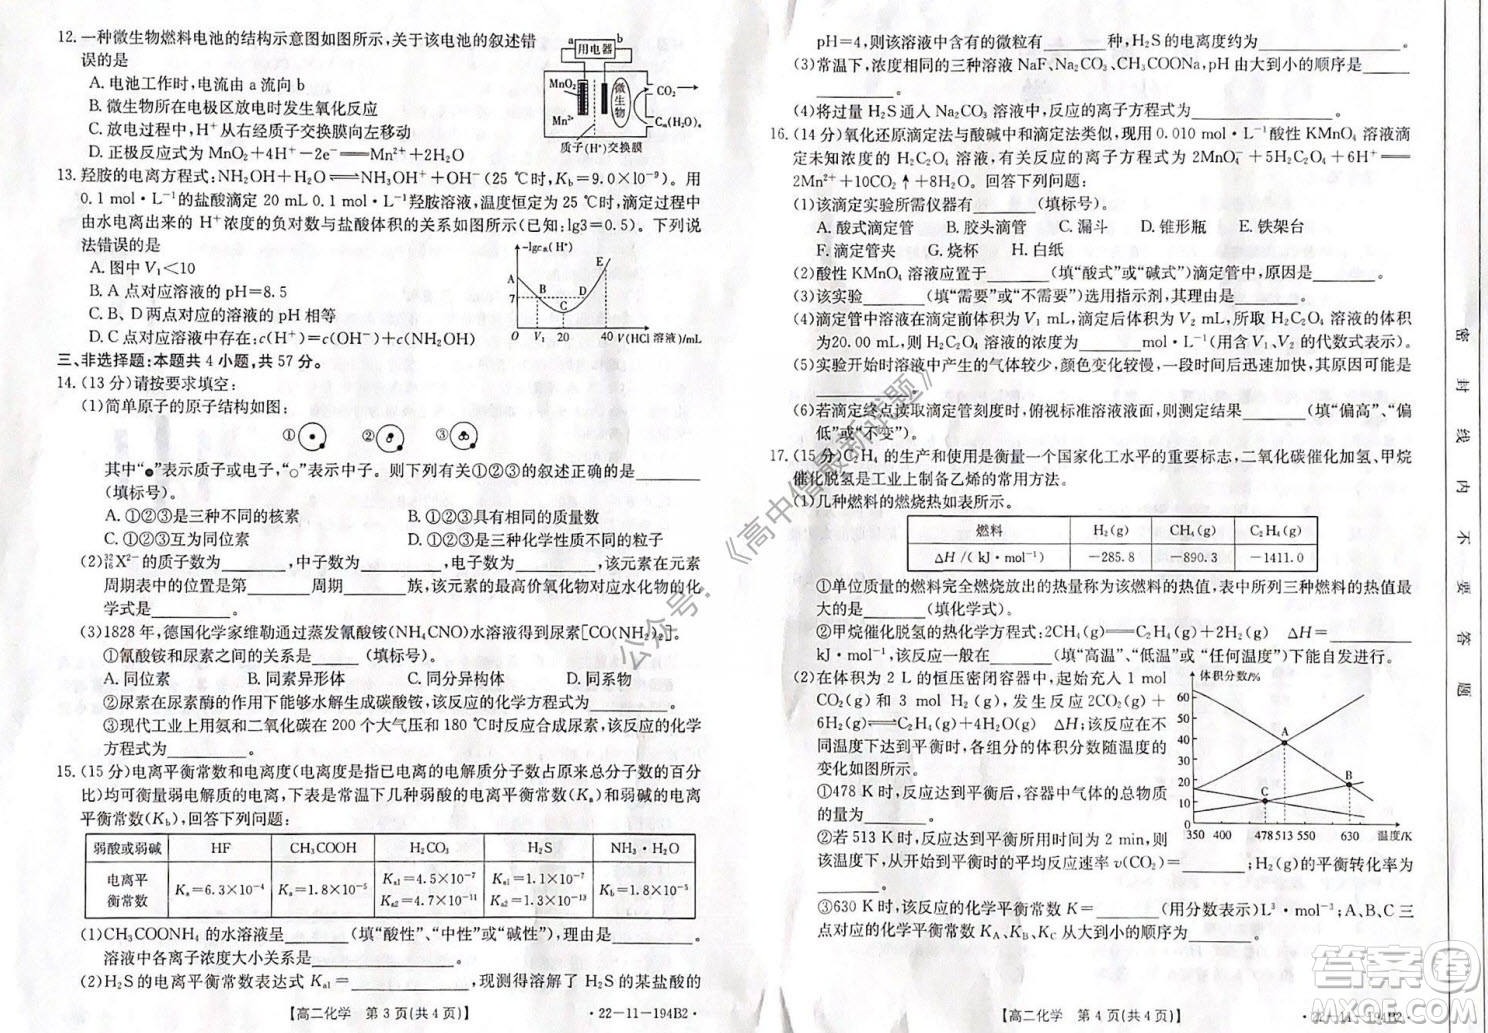 12. 一种微生物燃料电池的结构示意图如图所示,关于该电池的叙述错
误的是
A. 电池工作时,电流由 a 流向 b
B. 微生物所在电极区放电时发生氧化反应
C. 放电过程中,H⁺从右经质子交换膜向左移动
D. 正极反应式为 MnO₂+4H⁺-2e⁻══Mn²⁺+2H₂O
a 用电器 b
MnO₂ Mn²⁺ 微生物 CO₂ Cₘ(H₂O)ₙ
质子(H⁺)交换膜
13. 羟胺的电离方程式:NH₂OH+H₂O⇌NH₃OH⁺+OH⁻(25 ℃时,K_b=9.0×10⁻⁹)。用
0.1 mol·L⁻¹的盐酸滴定 20 mL 0.1 mol·L⁻¹羟胺溶液,温度恒定为 25 ℃时,滴定过程中
由水电离出来的 H⁺浓度的负对数与盐酸体积的关系如图所示(已知:lg3=0.5)。下列说
法错误的是
A. 图中 V₁<10
B. A 点对应溶液的 pH=8.5
C. B、D 两点对应的溶液的 pH 相等
D. C 点对应溶液中存在:c(H⁺)=c(OH⁻)+c(NH₂OH)
-lgc水(H⁺) A B C D E 7
O V₁ 20 40 V(HCl 溶液)/mL
三、非选择题:本题共 4 小题,共 57 分。
14. (13 分)请按要求填空:
(1)简单原子的原子结构如图:
① ② ③
其中“●”表示质子或电子,“○”表示中子。则下列有关①②③的叙述正确的是______
(填标号)。
A. ①②③是三种不同的核素 B. ①②③具有相同的质量数
C. ①②③互为同位素 D. ①②③是三种化学性质不同的粒子
(2)³²₁₆X²⁻的质子数为______,中子数为______,电子数为______,该元素在元素
周期表中的位置是第______周期______族,该元素的最高价氧化物对应水化物的化
学式是______。
(3)1828 年,德国化学家维勒通过蒸发氰酸铵(NH₄CNO)水溶液得到尿素[CO(NH₂)₂]。
①氰酸铵和尿素之间的关系是______(填标号)。
A. 同位素 B. 同素异形体 C. 同分异构体 D. 同系物
②尿素在尿素酶的作用下能够水解生成碳酸铵,该反应的化学方程式为______。
③现代工业上用氨和二氧化碳在 200 个大气压和 180 ℃时反应合成尿素,该反应的化学
方程式为______。
15. (15 分)电离平衡常数和电离度(电离度是指已电离的电解质分子数占原来总分子数的百分
比)均可衡量弱电解质的电离,下表是常温下几种弱酸的电离平衡常数(Kₐ)和弱碱的电离
平衡常数(K_b),回答下列问题:
弱酸或弱碱 HF CH₃COOH H₂CO₃ H₂S NH₃·H₂O
电离平衡常数 Kₐ=6.3×10⁻⁴ Kₐ=1.8×10⁻⁵ Kₐ₁=4.5×10⁻⁷ Kₐ₂=4.7×10⁻¹¹ Kₐ₁=1.1×10⁻⁷ Kₐ₂=1.3×10⁻¹³ K_b=1.8×10⁻⁵
(1)CH₃COONH₄ 的水溶液呈______(填“酸性”、“中性”或“碱性”),理由是______。
溶液中各离子浓度大小关系是______。
(2)H₂S 的电离平衡常数表达式 Kₐ₁=______,现测得溶解了 H₂S 的某盐酸的
【高二化学 第 3 页(共 4 页)】 ·22-11-194B2·
pH=4,则该溶液中含有的微粒有______种,H₂S 的电离度约为______。
(3)常温下,浓度相同的三种溶液 NaF、Na₂CO₃、CH₃COONa,pH 由大到小的顺序是______
______。
(4)将过量 H₂S 通入 Na₂CO₃ 溶液中,反应的离子方程式为______。
16. (14 分)氧化还原滴定法与酸碱中和滴定法类似,现用 0.010 mol·L⁻¹酸性 KMnO₄ 溶液滴
定未知浓度的 H₂C₂O₄ 溶液,有关反应的离子方程式为 2MnO₄⁻+5H₂C₂O₄+6H⁺══
2Mn²⁺+10CO₂↑+8H₂O。回答下列问题:
(1)该滴定实验所需仪器有______(填标号)。
A. 酸式滴定管 B. 胶头滴管 C. 漏斗 D. 锥形瓶 E. 铁架台
F. 滴定管夹 G. 烧杯 H. 白纸
(2)酸性 KMnO₄ 溶液应置于______(填“酸式”或“碱式”)滴定管中,原因是______。
(3)该实验______(填“需要”或“不需要”)选用指示剂,其理由是______。
(4)滴定管中溶液在滴定前体积为 V₁ mL,滴定后体积为 V₂ mL,所取 H₂C₂O₄ 溶液的体积
为20.00 mL,则 H₂C₂O₄ 溶液的浓度为______mol·L⁻¹(用含 V₁、V₂ 的代数式表示)。
(5)实验开始时溶液中产生的气体较少,颜色变化较慢,一段时间后迅速加快,其原因可能是
______。
(6)若滴定终点读取滴定管刻度时,俯视标准溶液液面,则测定结果______(填“偏高”、“偏
低”或“不变”)。
17. (15 分)C₂H₄ 的生产和使用是衡量一个国家化工水平的重要标志,二氧化碳催化加氢、甲烷
催化脱氢是工业上制备乙烯的常用方法。
(1)几种燃料的燃烧热如表所示。
燃料 H₂(g) CH₄(g) C₂H₄(g)
ΔH/(kJ·mol⁻¹) -285.8 -890.3 -1411.0
①单位质量的燃料完全燃烧放出的热量称为该燃料的热值,表中所列三种燃料的热值最
大的是______(填化学式)。
②甲烷催化脱氢的热化学方程式:2CH₄(g)══C₂H₄(g)+2H₂(g) ΔH=______
kJ·mol⁻¹,该反应一般在______(填“高温”、“低温”或“任何温度”)下能自发进行。
(2)在体积为 2 L 的恒压密闭容器中,起始充入 1 mol
CO₂(g)和 3 mol H₂(g),发生反应2CO₂(g)+
6H₂(g)⇌C₂H₄(g)+4H₂O(g) ΔH;该反应在不
同温度下达到平衡时,各组分的体积分数随温度的
变化如图所示。
①478 K 时,反应达到平衡后,容器中气体的总物质
的量为______。
体积分数/% 60 50 40 30 20 10 A B C
350 400 478 513 550 630 温度/K
②若 513 K 时,反应达到平衡所用时间为 2 min,则
反应从开始到平衡时的平均反应速率 v(CO₂)=______;H₂(g)的平衡转化率为
______。
③630 K 时,该反应的化学平衡常数 K=______(用分数表示)L³·mol⁻³;A、B、C 三
点对应的化学平衡常数 K_A、K_B、K_C 从大到小的顺序为______。
【高二化学 第 4 页(共 4 页)】 ·22-11-194B2·
密 封 线 内 不 要 答 题
公众号:《高中僧最新试题》
答案圈
MXQE.COM